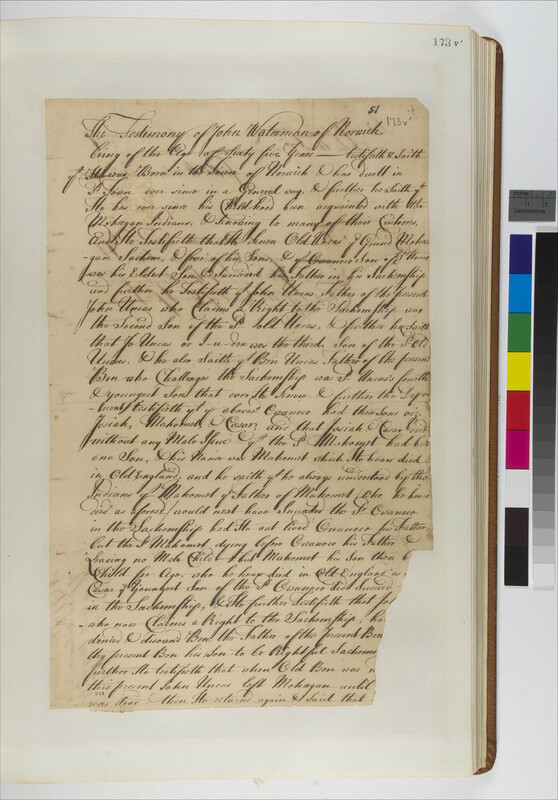 173 v
51
173v
The Testimony of John Waterman of Norwich
being of the Age of Sixty five Years — testifeth & Saith
yt He was Born in the Town of Norwich & has dwelt in
sd Town ever since in a General way, & further he Saith yt
He has ever since his Childhood ben acquainted with the
Mohagan Indians, & Knowing to many of their Customs,
And He Testifieth that He knew Old Uncas ye Grand Moha-
gan Sachem, & four of his Sons, & yt Owaneco Son of sd Uncas
was his Eldest Son & Survived his Father in his Sachemship
and further he Testifieth yt John Uncas Father of the present
John Uncas who Claims a Right to the Sachemship was
the Second Son of the sd old Uncas, & further he Saith
that Jo Uncas or J-u-dou was the third Son of the sd Old
Uncas, & he also Saith yt Ben Uncas Father of the present
Ben who Challenges the Sachemship was sd Uncas's fourth
& youngest Son that ever He knew & further the Depo-
-nent testifieth yt ye abovesd Owaneco had three Sons viz
Josiah, Mahomet, & Cesar, and that Josiah & Cesar died
without any Male Issue & yt the sd Mahomet had but
one Son, & his Name was Mahomet which He hears died
in Old England, and he saith yt he always understood by the
Indians yt Mahomet ye Father of Mahomet who he hears
died as aforesd would next have Succeeded the sd Owaneco
in the Sachemship had He out lived Owaneco his Father
but the sd Mahomet dying before Owaneco his Father &
Leaving no Male Child but Mahomet his Son then
Child for Age, who he hears died in Old England as
Cesar ye Youngest Son of the sd Owaneco did Succeed
in the Sachemship, & He further testifieth that
who now Claims a Right to the Sachemship, ha
denied & disownd Ben the Father of the present Ben
thy present Ben his Son to be Rightful Sachems
further He testifieth that when Old Ben was
this present John Uncas left Mohagan until
was dead then He returnd again & Said that